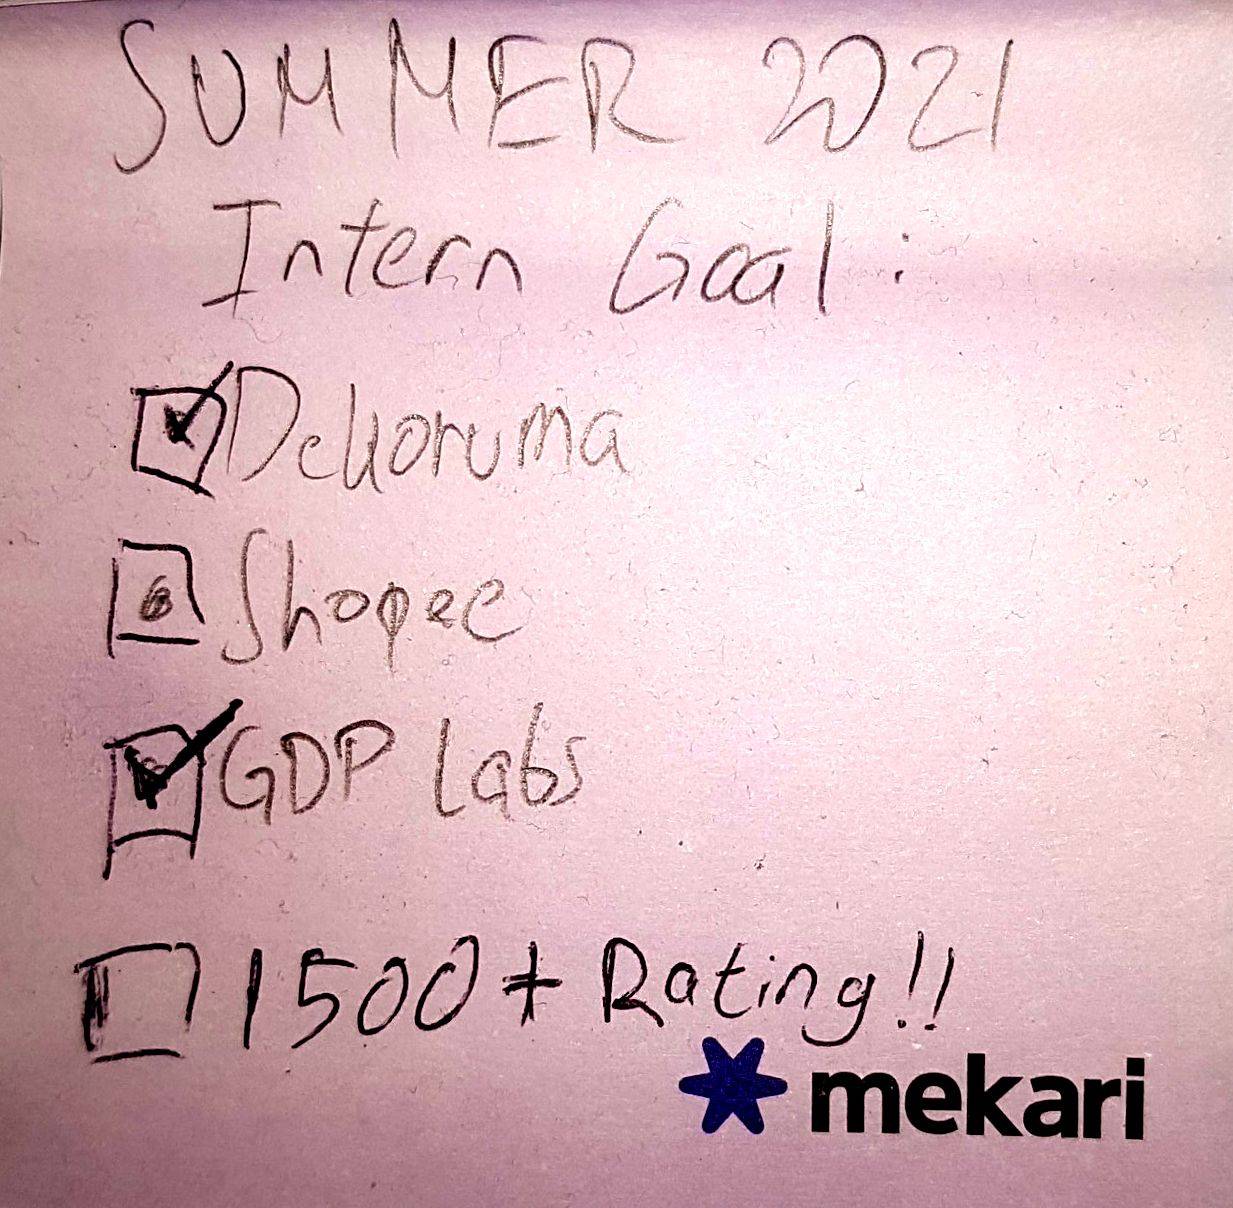 SUMMER 2021
Intern Goal :
Dekoruma
Shopee
GDP Labs
1500+ Rating!!
mekari